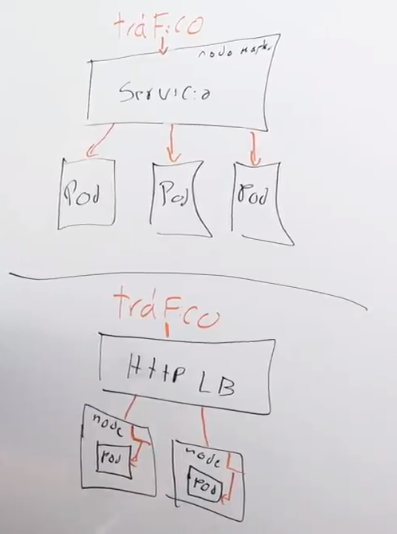 tráFico
nodo Master
Servicio
Pod Pod Pod
tráFco
HttP LB
node node
Pod Pod